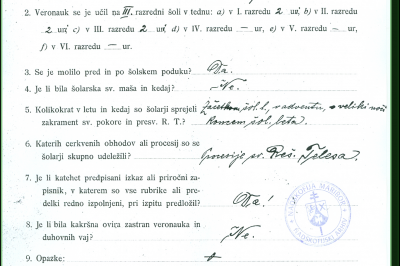 2. Veronauk se je učil na III. razredni šoli v tednu: a) v I. razredu 2 ur, b) v II. razredu
2 ur, c) v III. razredu 2 ur d) v IV. razredu — ur, e) v V. razredu —
ur, f) v VI. razredu — ur.
3. Se je molilo pred in po šolskem poduku? Da.
4. Je li bila šolarska sv. maša in kedaj? Ne.
5. Kolikokrat v letu in kedaj so šolarji sprejeli Začetkom šol. l., v adventu, o veliki noči
zakrament sv. pokore in presv. R. T.? Koncem šol. leta.
6. Katerih cerkvenih obhodov ali procesij so se
šolarji skupno udeležili? Procesije sv. Reš. Telesa.
7. Je li katehet predpisani izkaz ali priročni za-
pisnik, v katerem so vse rubrike ali pre-
delki redno izpolnjeni, pri izpitu predložil? Da!
8. Je li bila kakršna ovira zastran veronauka in
duhovnih vaj? Ne.
9. Opazke:
NADŠKOFIJA MARIBOR
NADŠKOFIJSKI ARHIV